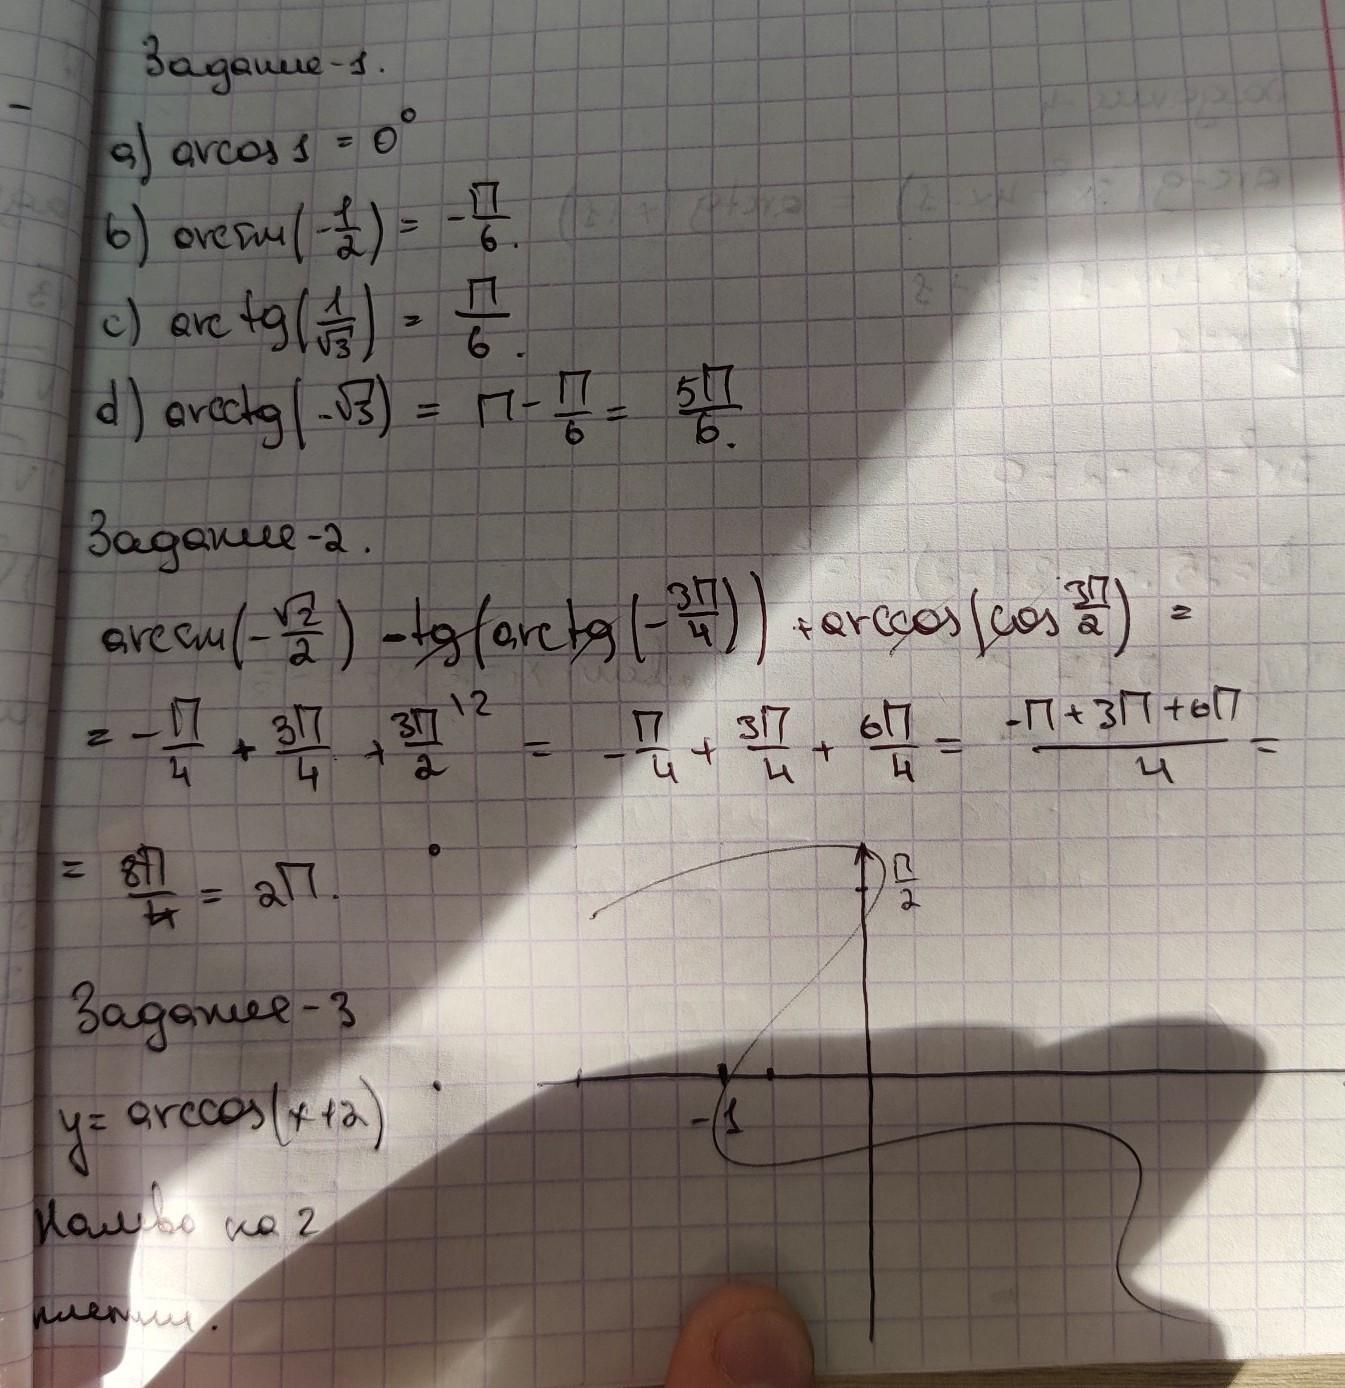 Задание-1.
a) arcos 1 = 0°
b) arcsin(-1/2) = -П/6.
c) arctg(1/√3) = П/6.
d) arcctg(-√3) = П - П/6 = 5П/6.
Задание-2.
arcsin(-√2/2) - tg(arctg(-3П/4)) + arccos(cos 3П/2) =
= -П/4 + 3П/4 + 3П/2 |2 = -П/4 + 3П/4 + 6П/4 = -П+3П+6П/4 =
= 8П/4 = 2П.
П/2
Задание-3
-1
y = arccos(x+2)
на 2